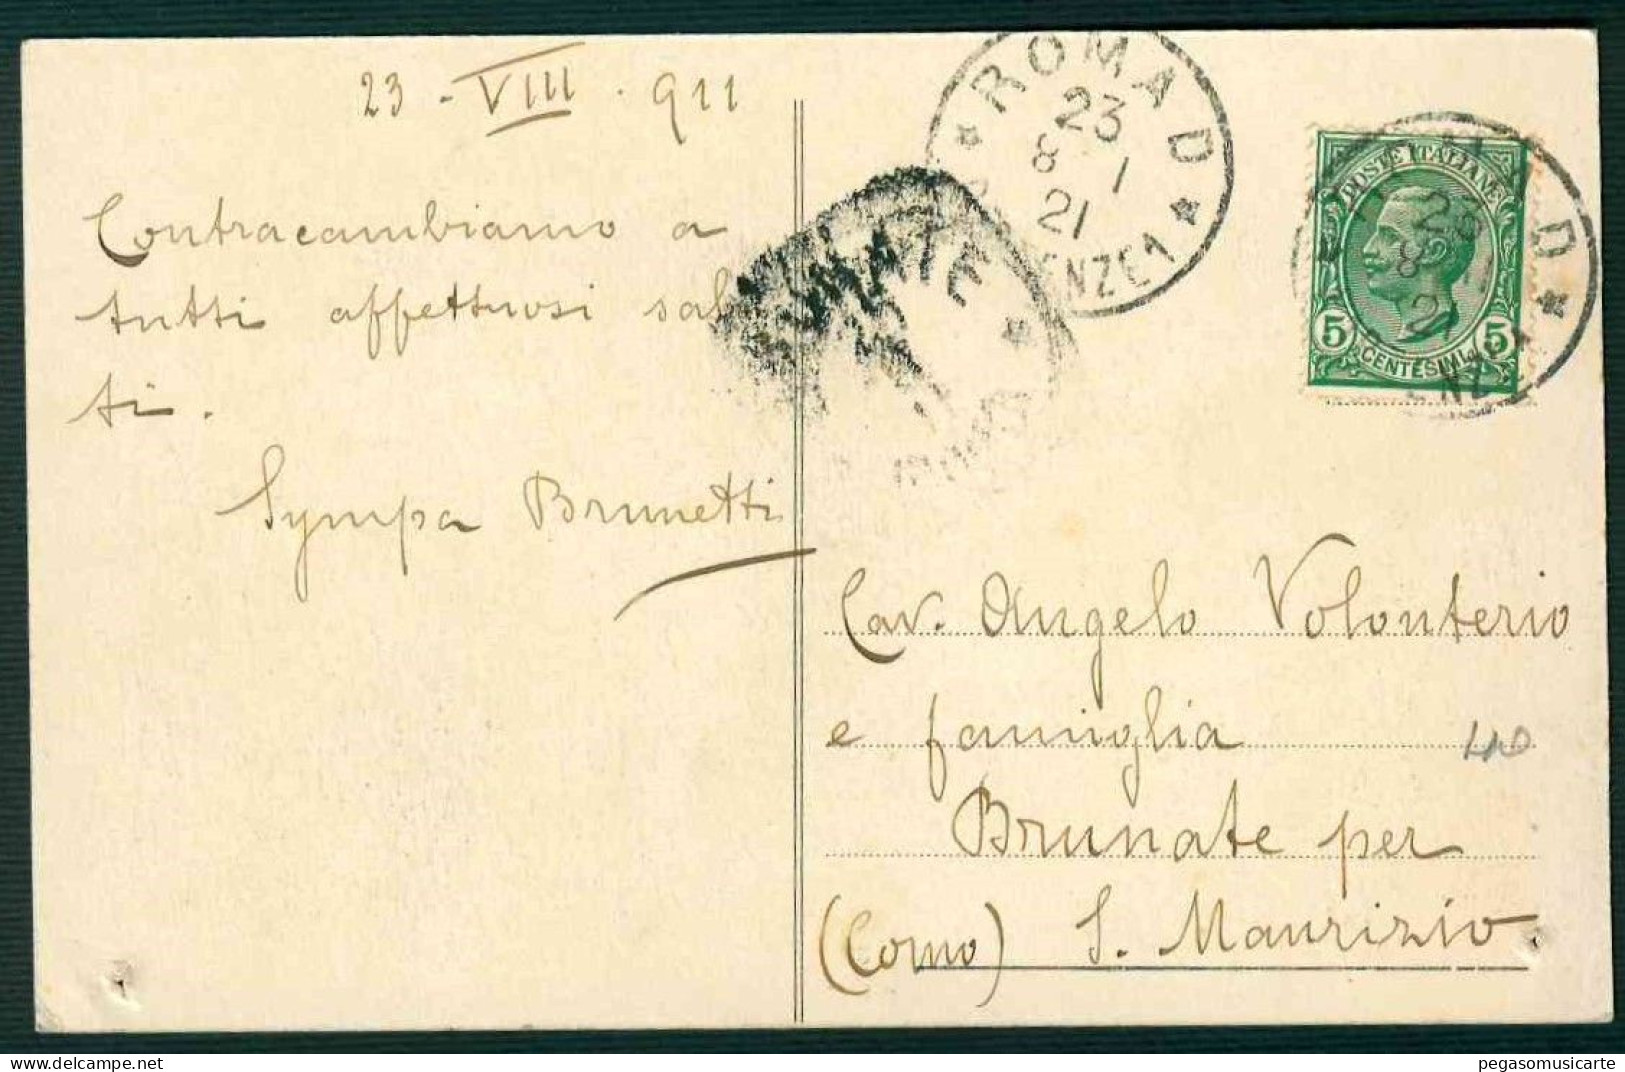 23 - VIII . 911
Contracambiamo a
tutti affettuosi salu
ti.
Sympa Brunetti
ROMA D
23
8 1
21
POSTE ITALIANE
5 CENTESIMI 5
D
23
8
21
Cav. Angelo Volonterio
e famiglia
Brunate per
(Como) S. Maurizio.
pegasomusicarte